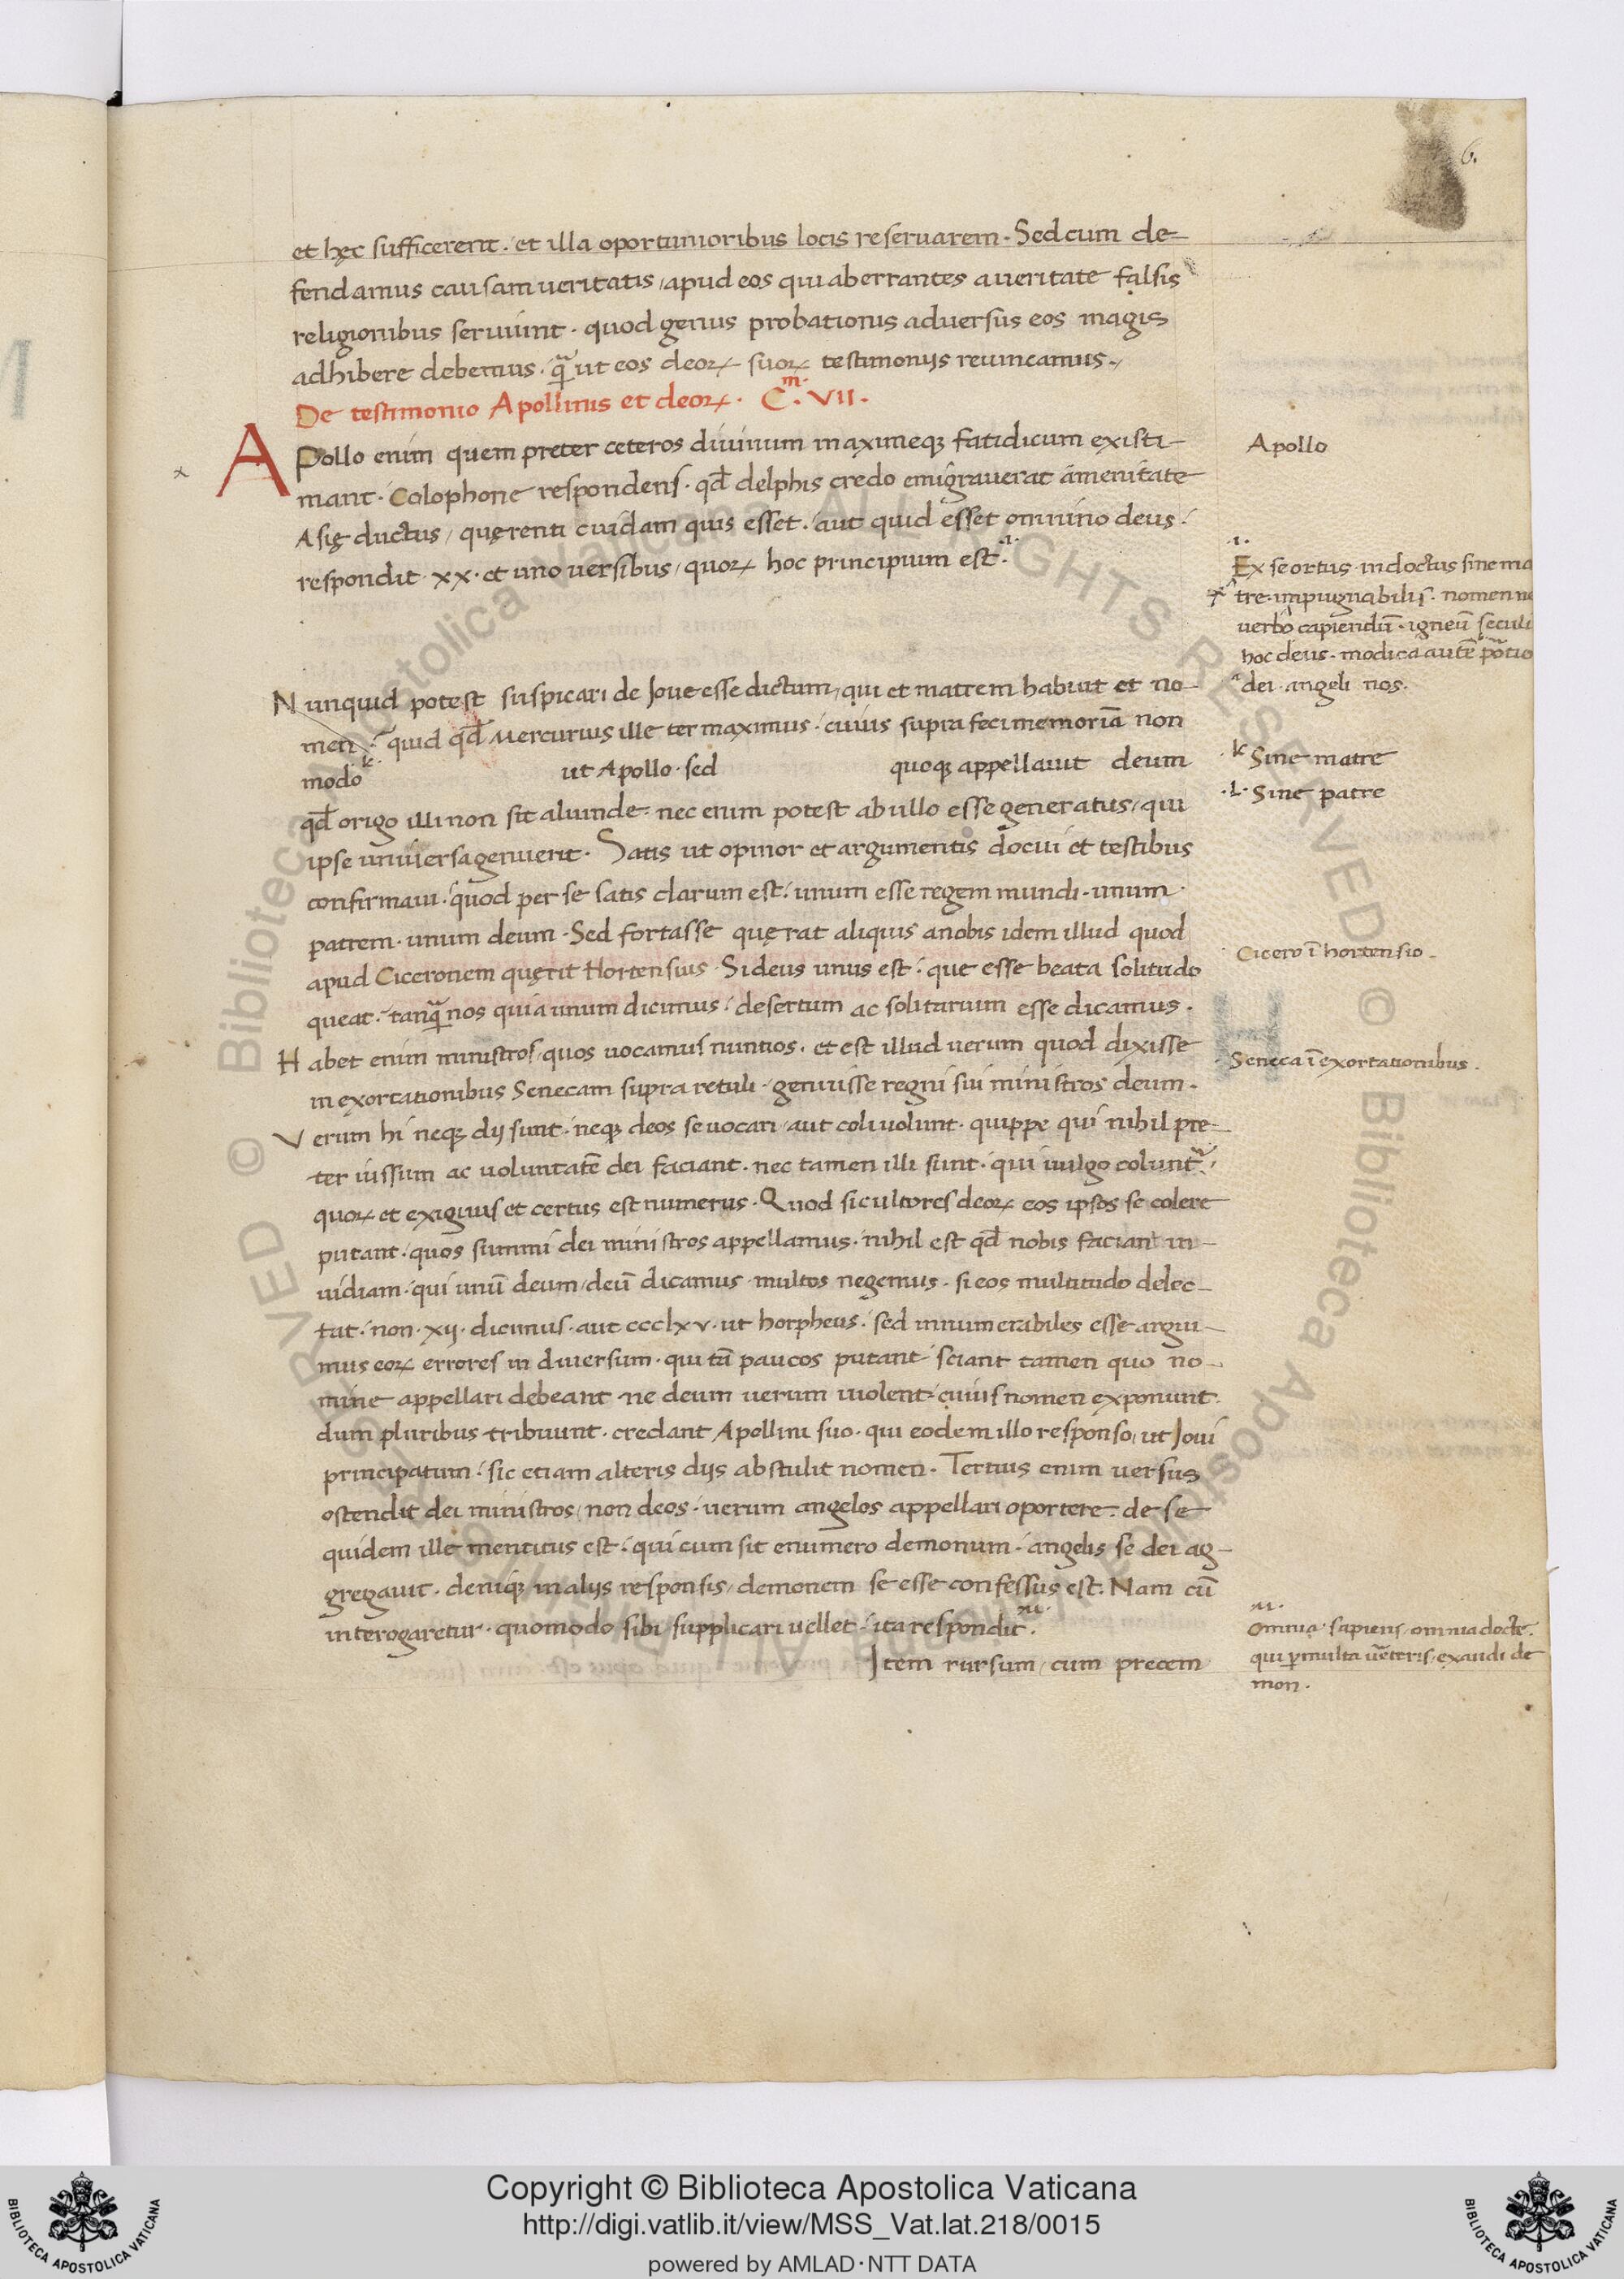 6.
et hęc sufficerent. et illa oportunioribus locis reseruarem. Sed cum de-
fendamus causam ueritatis, apud eos qui aberrantes a ueritate falsis
religionibus seruiunt. quod genus probationis aduersus eos magis
adhibere debemus. ꝗ̃ ut eos deoꝝ suoꝝ testimonijs reuincamus.
De testimonio Apollinis et deoꝝ. C.m VII.
APollo enim quem preter ceteros diuinum maximeqꝫ fatidicum existi-
mant. Colophone respondens. qd̄ delphis credo emigrauerat amenitate
Asię ductus, quęrenti cuidam quis esset. aut quid esset omnino deus.
respondit xx. et uno uersibus, quoꝝ hoc principium est.
Nunquid potest suspicari de Ioue esse dictum, qui et matrem habuit et no-
men. quid qd̄ Mercurius ille ter maximus. cuius supra feci memoriā non
modo k ut Apollo. sed quoqꝫ appellauit deum
qd̄ origo illi non sit aliunde. nec enim potest ab ullo esse generatus, qui
ipse uniuersa genuerit. Satis ut opinor et argumentis docui et testibus
confirmaui. quod per se satis clarum est. unum esse regem mundi. unum
patrem. unum deum. Sed fortasse quęrat aliquis a nobis idem illud quod
apud Ciceronem quęrit Hortensius. Si deus unus est. que esse beata solitudo
queat. tanꝗ̃ nos quia unum dicimus. desertum ac solitarium esse dicamus.
Habet enim ministros, quos uocamus nuntios. et est illud uerum quod dixisse
in exortationibus Senecam supra retuli. genuisse regni sui ministros deum.
Verum hi neqꝫ dij sunt. neqꝫ deos se uocari, aut coli uolunt. quippe qui nihil pre-
ter iussum ac uoluntatē dei faciant. nec tamen illi sunt. qui uulgo coluntᷣ,
quoꝝ et exiguus et certus est numerus. Quod si cultores deoꝝ eos ipsos se colere
putant. quos summi dei ministros appellamus. nihil est qd̄ nobis faciant in-
uidiam. qui unū deum, deū dicamus multos negemus. si eos multitudo delec-
tat. non xij. dicimus. aut ccclxv. ut horpheus. sed innumerabiles esse argui-
mus eoꝝ errores in diuersum. qui tā paucos putant sciant tamen quo no-
mine appellari debeant ne deum uerum uiolent. cuius nomen exponunt.
dum pluribus tribuunt. credant Apollini suo. qui eodem illo responso, ut Ioui
principatum. sic etiam alteris dijs abstulit nomen. Tertius enim uersus
ostendit dei ministros, non deos. uerum angelos appellari oportere. de se
quidem ille mentitus est. qui cum sit e numero demonum. angelis se dei ag-
gregauit. deniqꝫ in alijs responsis, demonem se esse confessus est. Nam cū
interogaretur. quomodo sibi supplicari uellet. ita respondit. m.
Item rursum, cum precem
Apollo
.i.
Ex se ortus. indoctus sine ma
tre. inpugnabilis. nomen ne
uerbo capiendū. igneū seculi
hoc deus. modica autē portio
dei angeli nos.
.k Sine matre
.l. Sine patre
Cicero ī hortensio.
Seneca ī exortationibus.
.m.
Omnia sapiens, omnia docte.
exaudi de
mon.
© Biblioteca Apostolica Vaticana ALL RIGHTS RESERVED
Copyright © Biblioteca Apostolica Vaticana
http://digi.vatlib.it/view/MSS_Vat.lat.218/0015
powered by AMLAD·NTT DATA
BIBLIOTECA APOSTOLICA VATICANA
BIBLIOTECA APOSTOLICA VATICANA